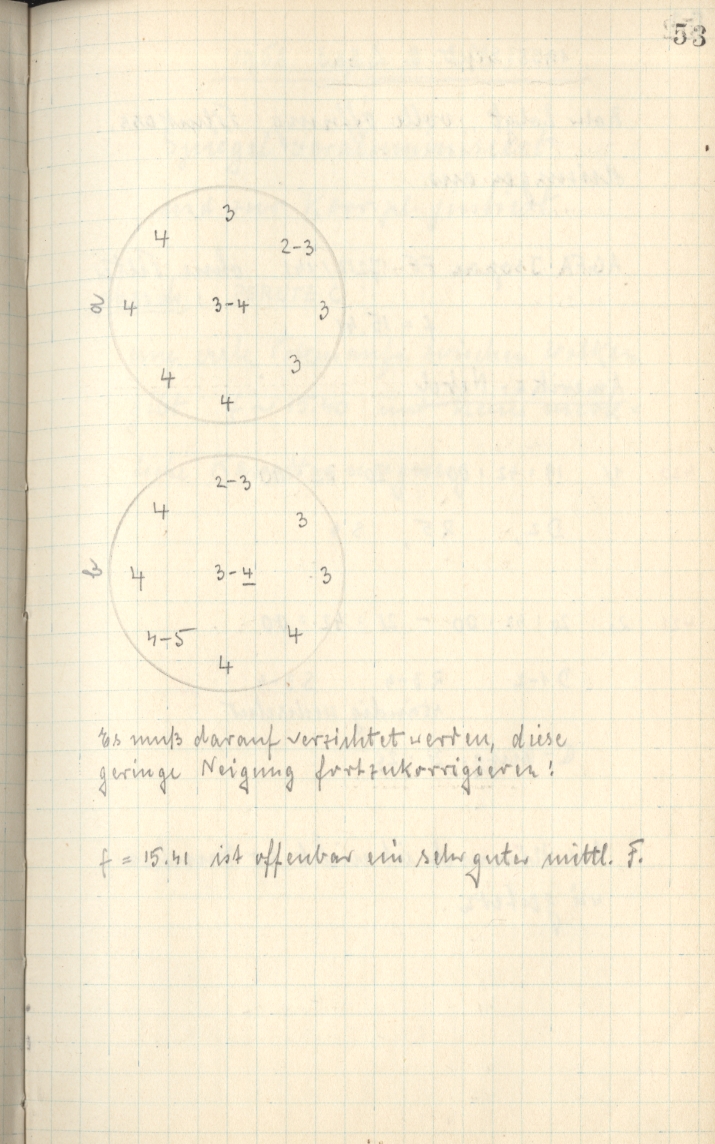 53
3
4 2-3
a 4 3-4 3
4 3
4
2-3
4 3
b 4 3-4 3
4-5 4
4
Es muß darauf verzichtet werden, diese
geringe Neigung fortzukorrigieren!
f = 15.41 ist offenbar ein sehr guter mittl. F.